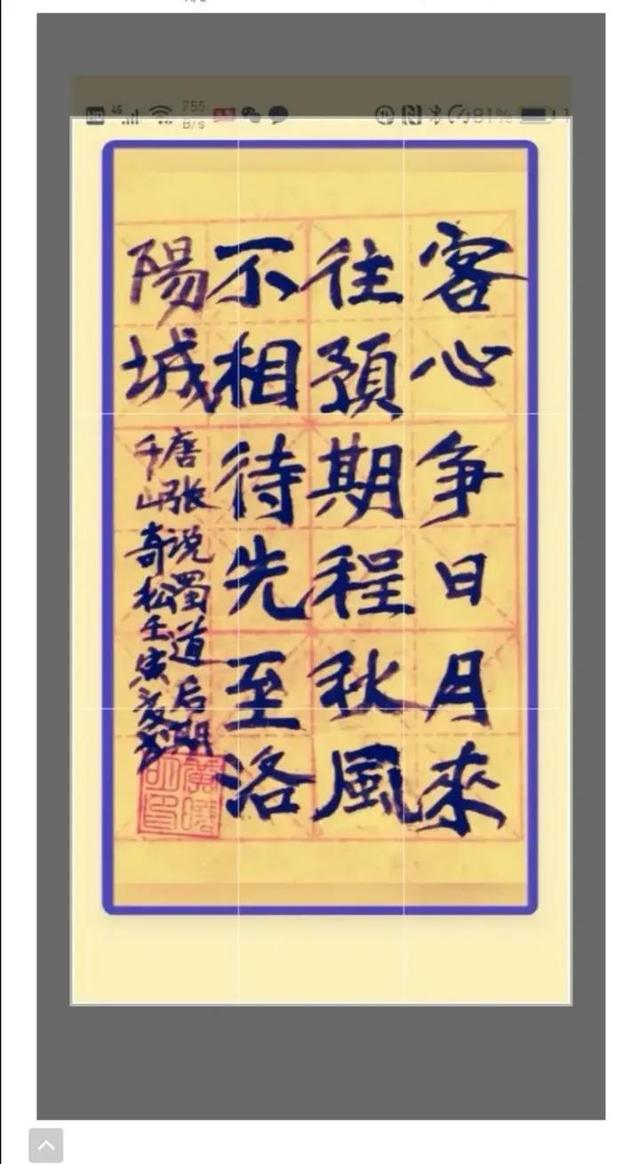 HD 4G 755 B/s 81%
客心争日月來
往預期程秋風
不相待先至洛
陽城
唐张说蜀道后期
千山奇松壬寅夏